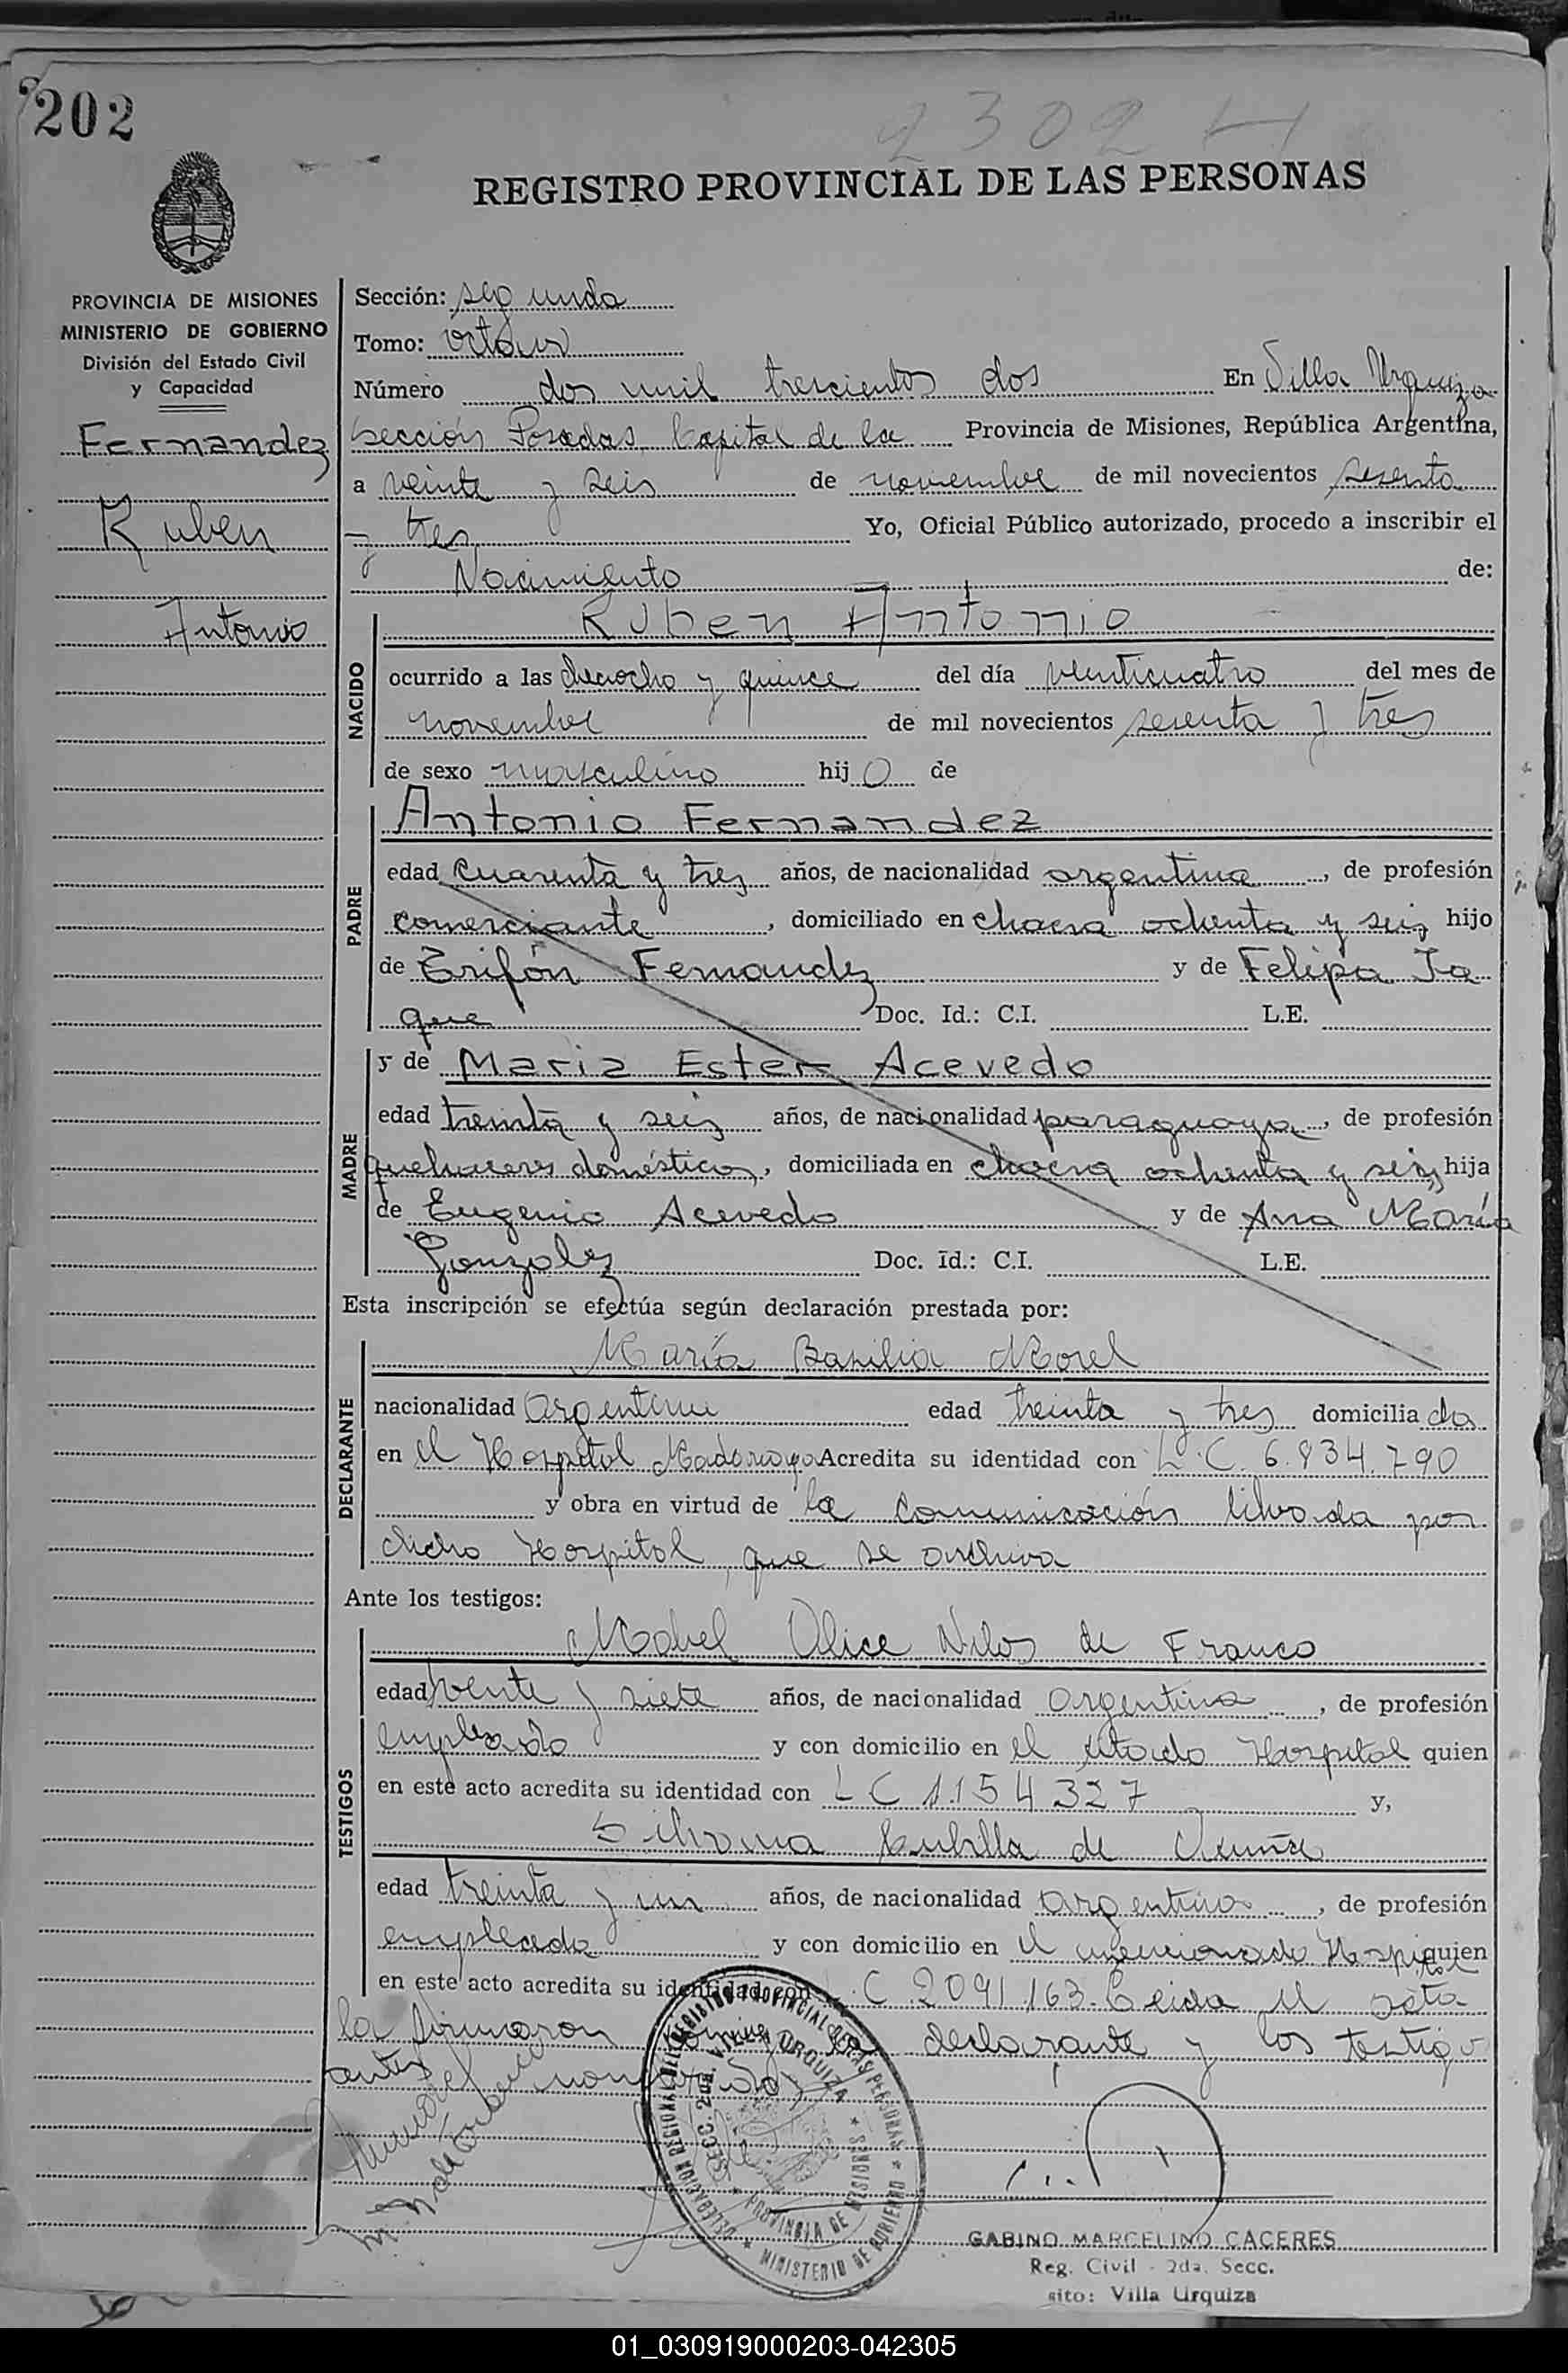 202
2302
REGISTRO PROVINCIAL DE LAS PERSONAS
PROVINCIA DE MISIONES
MINISTERIO DE GOBIERNO
División del Estado Civil
y Capacidad
Fernandez
Ruben
Antonio
Sección: segunda
Tomo: octavo
Número dos mil trescientos dos En Villa Urquiza
sección Posadas, Capital de la Provincia de Misiones, República Argentina,
a veinte y seis de noviembre de mil novecientos sesenta
y tres Yo, Oficial Público autorizado, procedo a inscribir el
Nacimiento de:
NACIDO
Ruben Antonio
ocurrido a las dieciocho y quince del día venticuatro del mes de
noviembre de mil novecientos sesenta y tres
de sexo masculino hijo de
PADRE
Antonio Fernandez
edad cuarenta y tres años, de nacionalidad argentina, de profesión
comerciante, domiciliado en chacra ochenta y seis, hijo
de Trifón Fernandez y de Felipa Ja
que Doc. Id.: C.I. L.E.
MADRE
y de Maria Ester Acevedo
edad treinta y seis años, de nacionalidad paraguaya, de profesión
quehaceres domésticos, domiciliada en chacra ochenta y seis, hija
de Eugenio Acevedo y de Ana María
Gonzalez Doc. Id.: C.I. L.E.
Esta inscripción se efectúa según declaración prestada por:
DECLARANTE
María Basilia Morel
nacionalidad argentina edad treinta y tres domiciliada
en el Hospital Madariaga Acredita su identidad con L.C. 6.834.790
y obra en virtud de la comunicación librada por
dicho Hospital que se archiva
Ante los testigos:
TESTIGOS
Mabel Alice de Franco
edad veinte y siete años, de nacionalidad argentina, de profesión
empleada y con domicilio en el citado Hospital quien
en este acto acredita su identidad con L C 1.154.327 y,
Silvana Cubilla de Acuña
edad treinta y un años, de nacionalidad argentina, de profesión
empleada y con domicilio en el mencionado Hospital quien
en este acto acredita su identidad con L.C 2091.163. Leida el acta
la firmaron conmigo la declarante y los testigo
antes nombrados
DELEGACION REGIONAL DEL REGISTRO PROVINCIAL DE LAS PERSONAS
SECC. 2da. VILLA URQUIZA
PROVINCIA DE MISIONES
MINISTERIO DE GOBIERNO
GABINO MARCELINO CACERES
Reg. Civil - 2da. Secc.
sito: Villa Urquiza
01_030919000203-042305